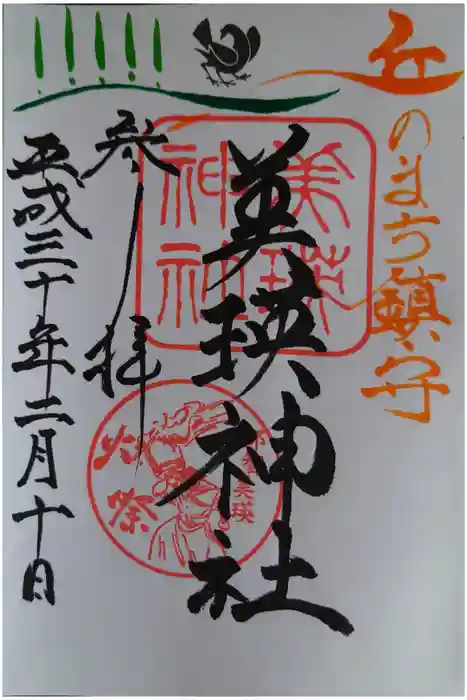 丘のまち鎮守
美瑛神社
美瑛神社
参拝
火祭
美瑛
平成三十年二月十日